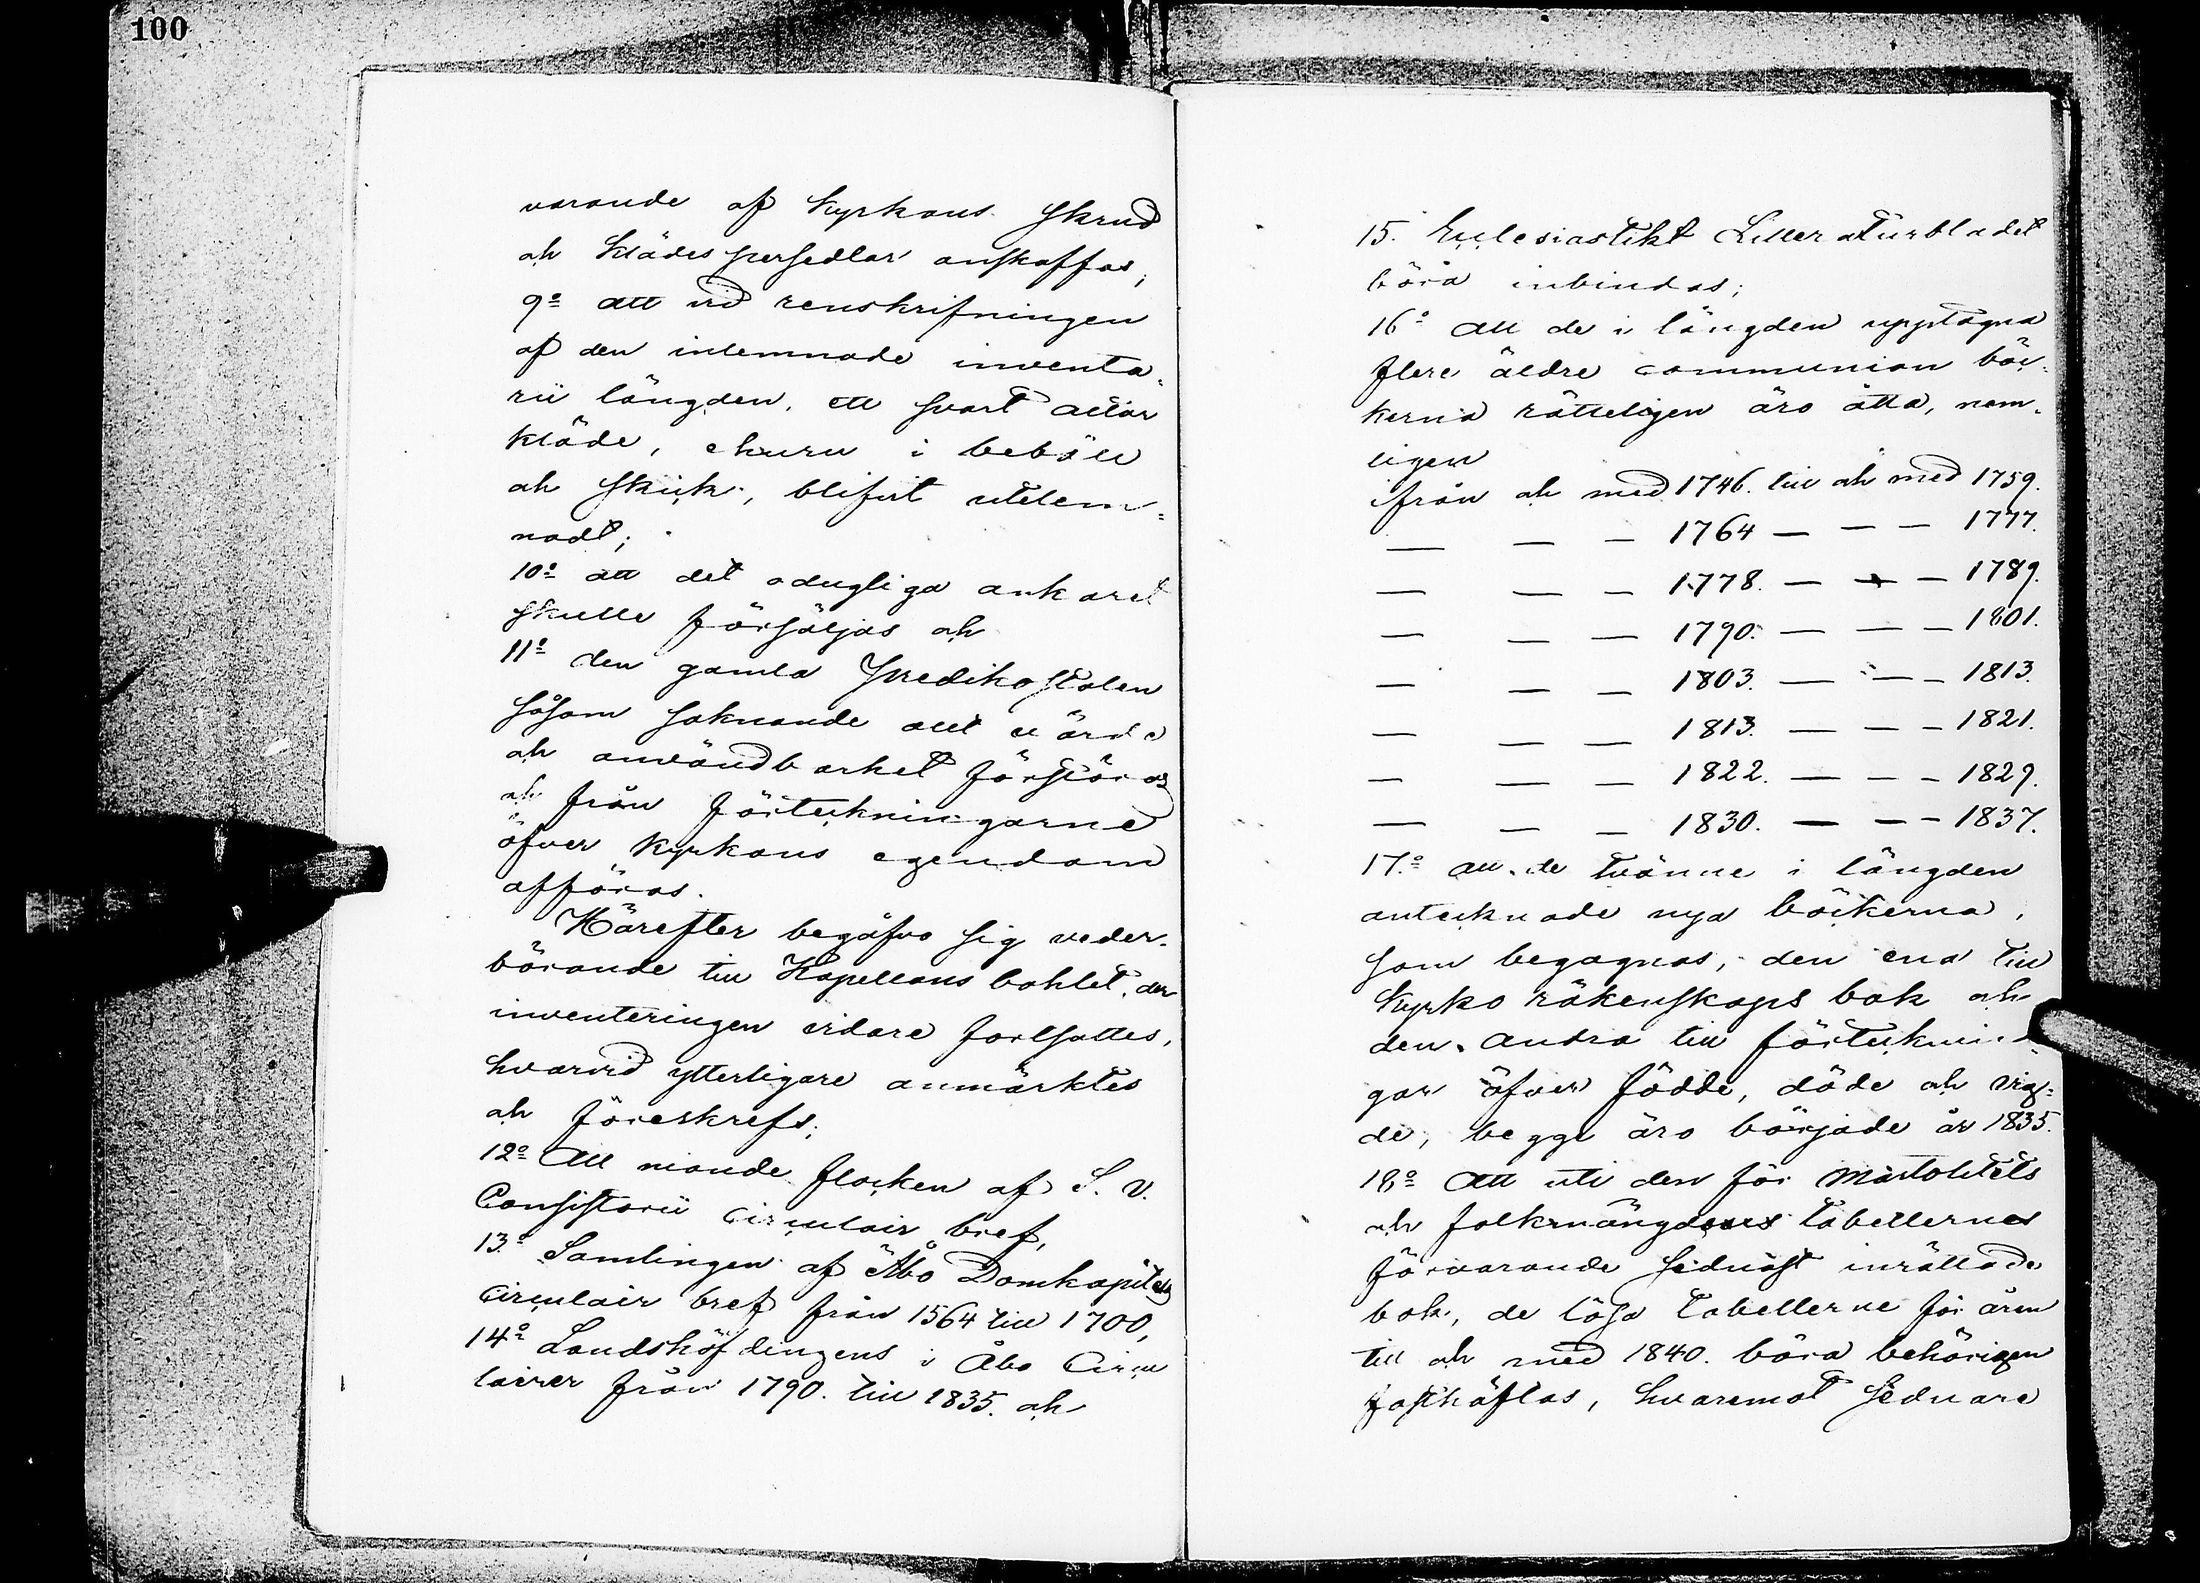 100
varande af Kyrkans skrud
och Klädespersedlar anskaffas;
9:o att vid renskrifningen
af den inlemnade inventa-
rii längden, ett svart altar
kläde, ehuru i behåll
och skick, blifvit utelem=
nadt;
10:o att det odugliga ankaret
skulle försäljas och
11:o den gamla Predikostolen
såsom saknande allt värde
och användbarhet förstöras
och från förteckningarne
öfver Kyrkans egendom
afföras.
Härefter begåfvo sig veder-
börande till Kapellans bohlet, der
inventeringen vidare fortsattes,
hvarvid ytterligare anmärktes
och föreskrefs;
12:o Att niande flocken af S. V.
Consistorii circulair bref,
13:o Samlingen af Åbo Domkapitels
circulair bref från 1564 till 1700,
14:o Landshöfdingens i Åbo Circu
lairer från 1790. till 1835. och
15. Ecclesiastikt Litteraturbladet
böra inbindas;
16:o Att de i längden upptagna
flere äldre communion böc-
kerna rätteligen äro åtta, nem-
ligen
från och med 1746. till och med 1759.
— — — 1764 — — — 1777.
— — — 1778. — — — 1789.
— — — 1790. — — — 1801.
— — — 1803. — — — 1813.
— — — 1813. — — — 1821.
— — — 1822. — — — 1829.
— — — 1830. — — — 1837.
17:o att de tvänne i längden
antecknade nya böckerna,
som begagnas, den ena till
Kyrko räkenskaps bok och
den andra till förtecknin-
gar öfver födde, döde och vig-
de, begge äro började år 1835.
18:o Att uti den för Mortalitets
och folkmängdens tabellernes
förvarande sednast inrättade
bok, de lösa tabellerne för åren
till och med 1840. böra behörigen
fasthäftas, hvaremot sednare